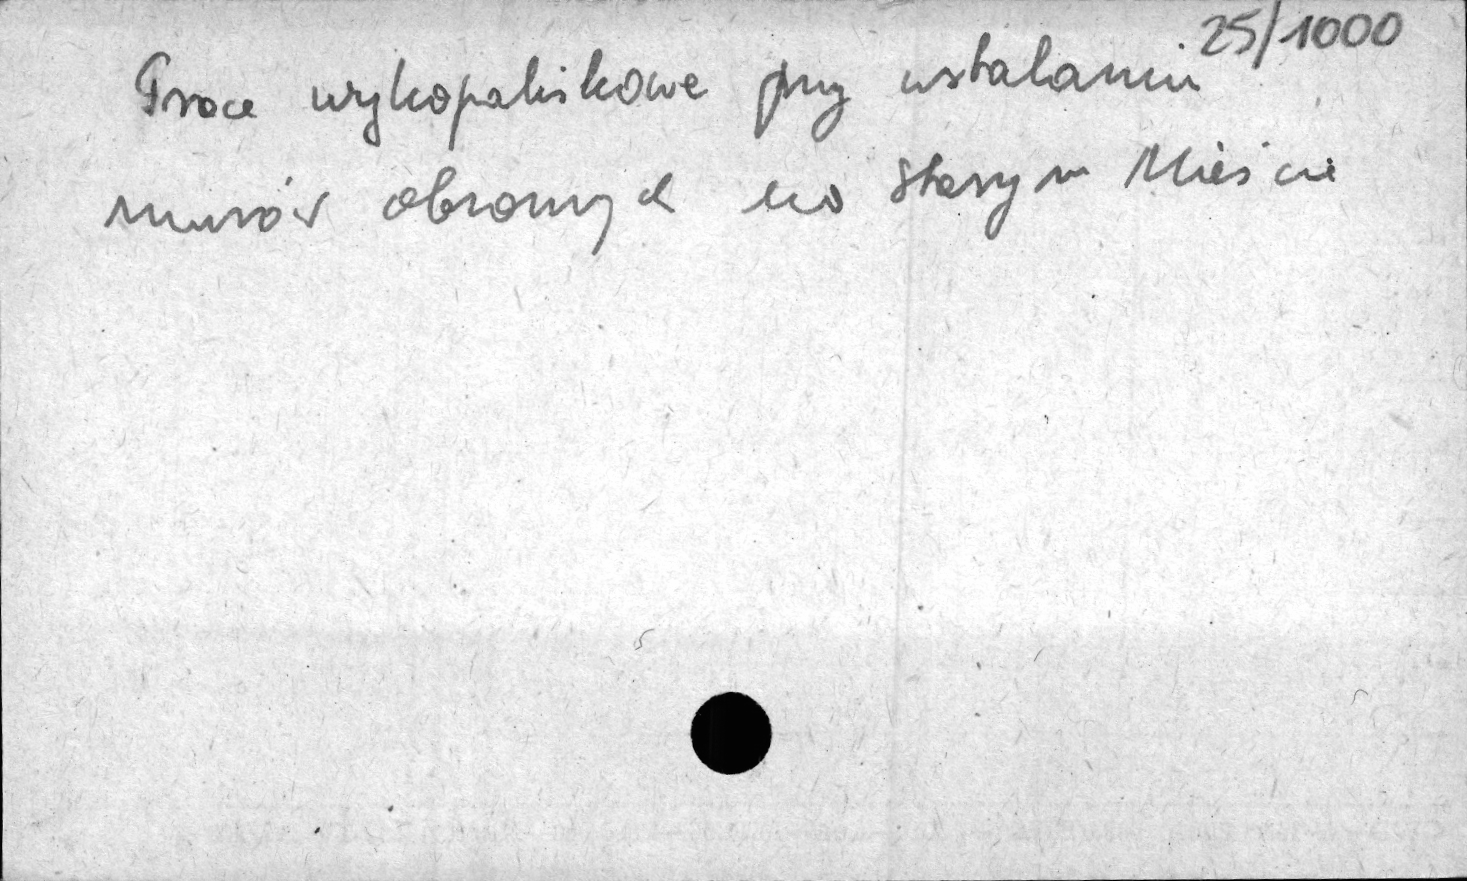 25/1000
Prace wykopaliskowe przy ustalaniu
murów obronnych na Starym Mieście